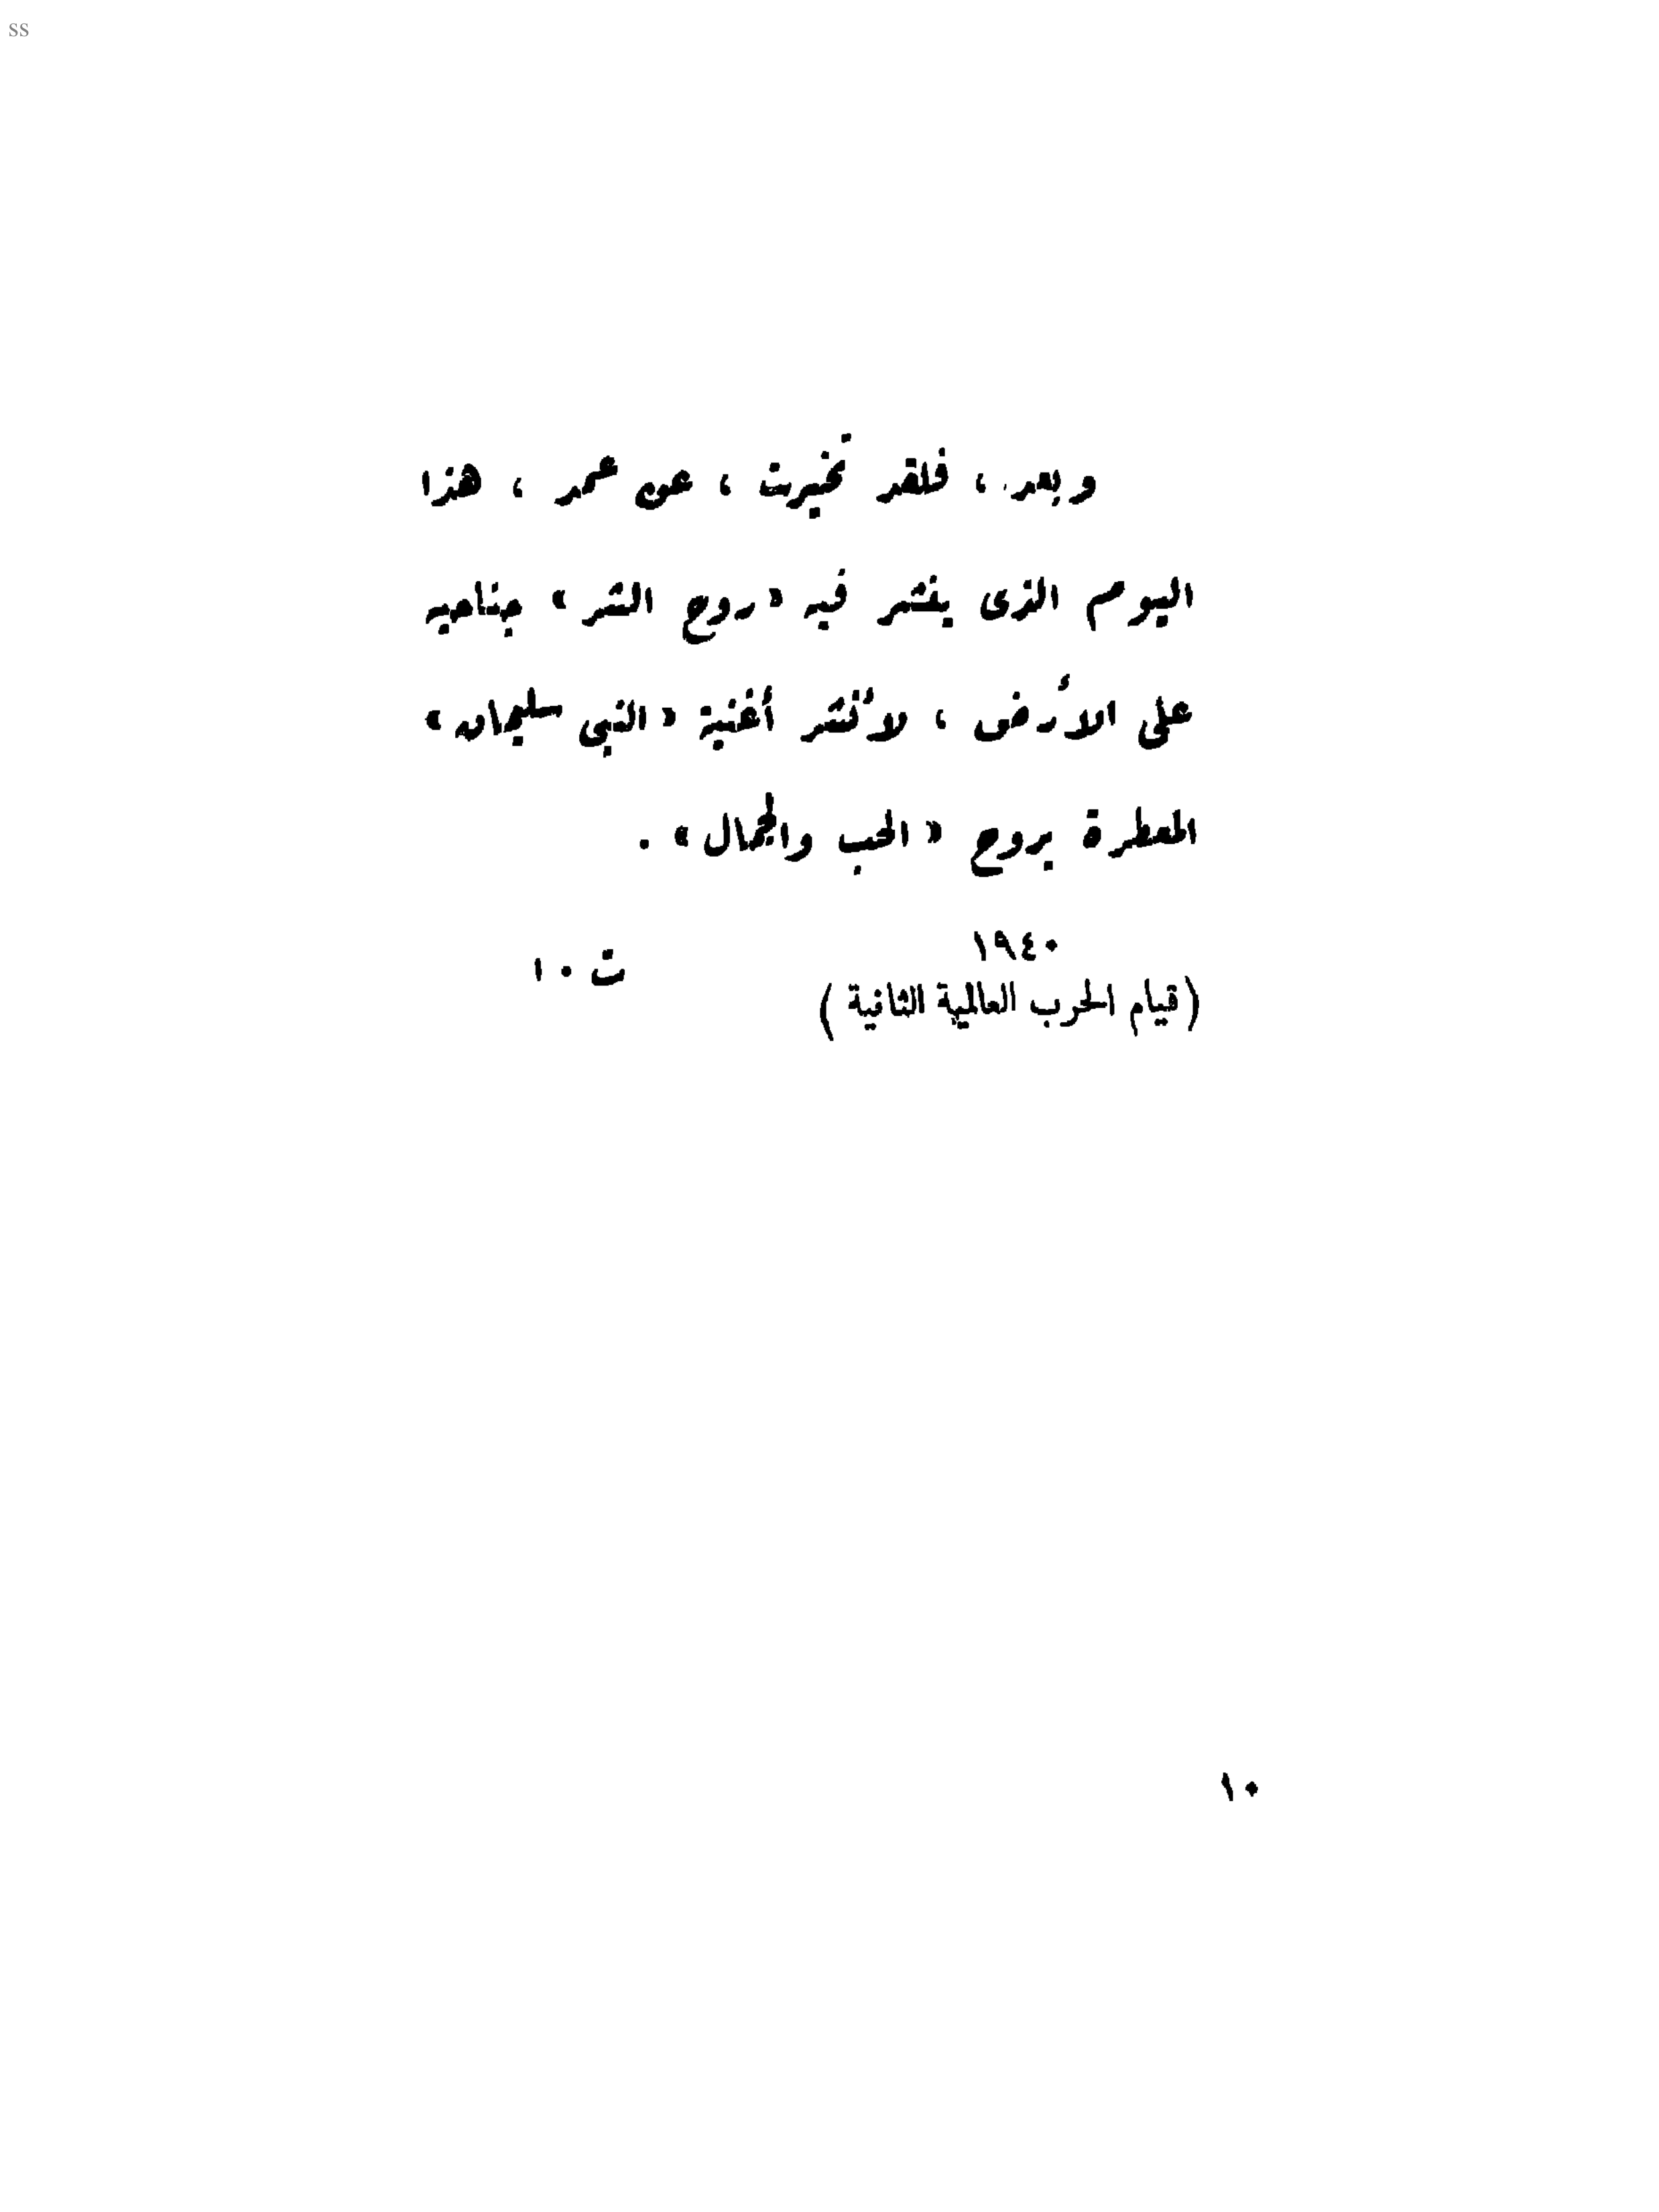 ss
وبعد ، فلقد تخيرت ، عن عمد ، هذا
اليوم الذى ينشر فيه «روح الشر» جناحيه
على الأرض ، لأنشر أغنية «النبي سليمان»
المعطرة بروح «الحب والجمال» .
١٩٤٠
(قيام الحرب العالمية الثانية)
ت ٠ ا
١٠